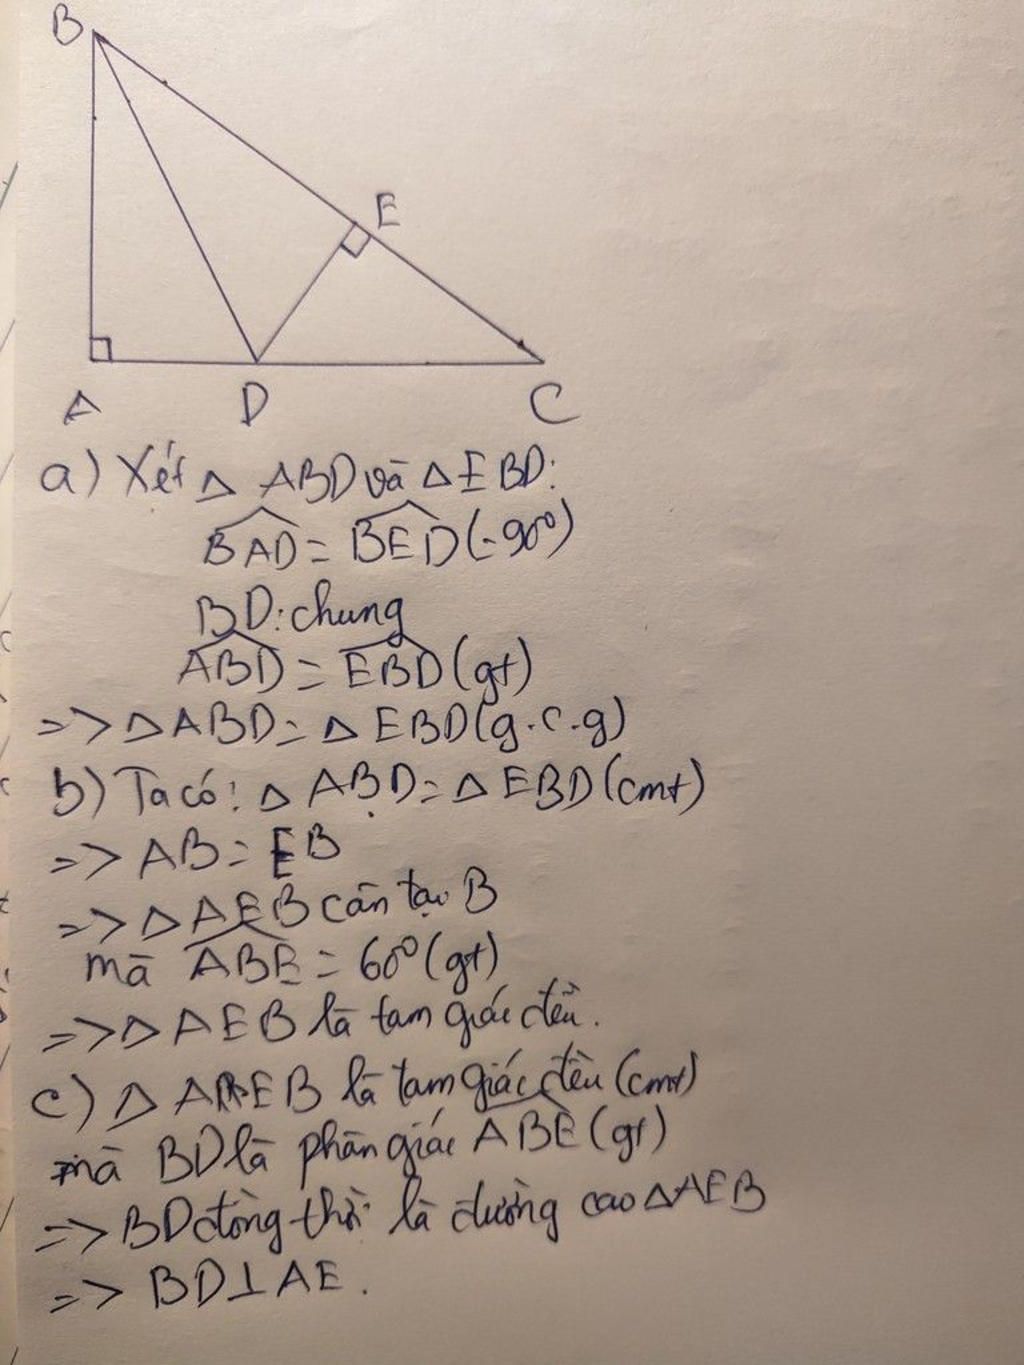 B
E
A D C
a) Xét △ ABD và △ EBD:
BAD = BED (=90°)
BD: chung
ABD = EBD (gt)
=> △ ABD = △ EBD (g.c.g)
b) Ta có: △ ABD = △ EBD (cmt)
=> AB = EB
=> △ AEB cân tại B
mà ABE = 60° (gt)
=> △ AEB là tam giác đều.
c) △ AEB là tam giác đều (cmt)
mà BD là phân giác ABE (gt)
=> BD đồng thời là đường cao △AEB
=> BD⊥AE.